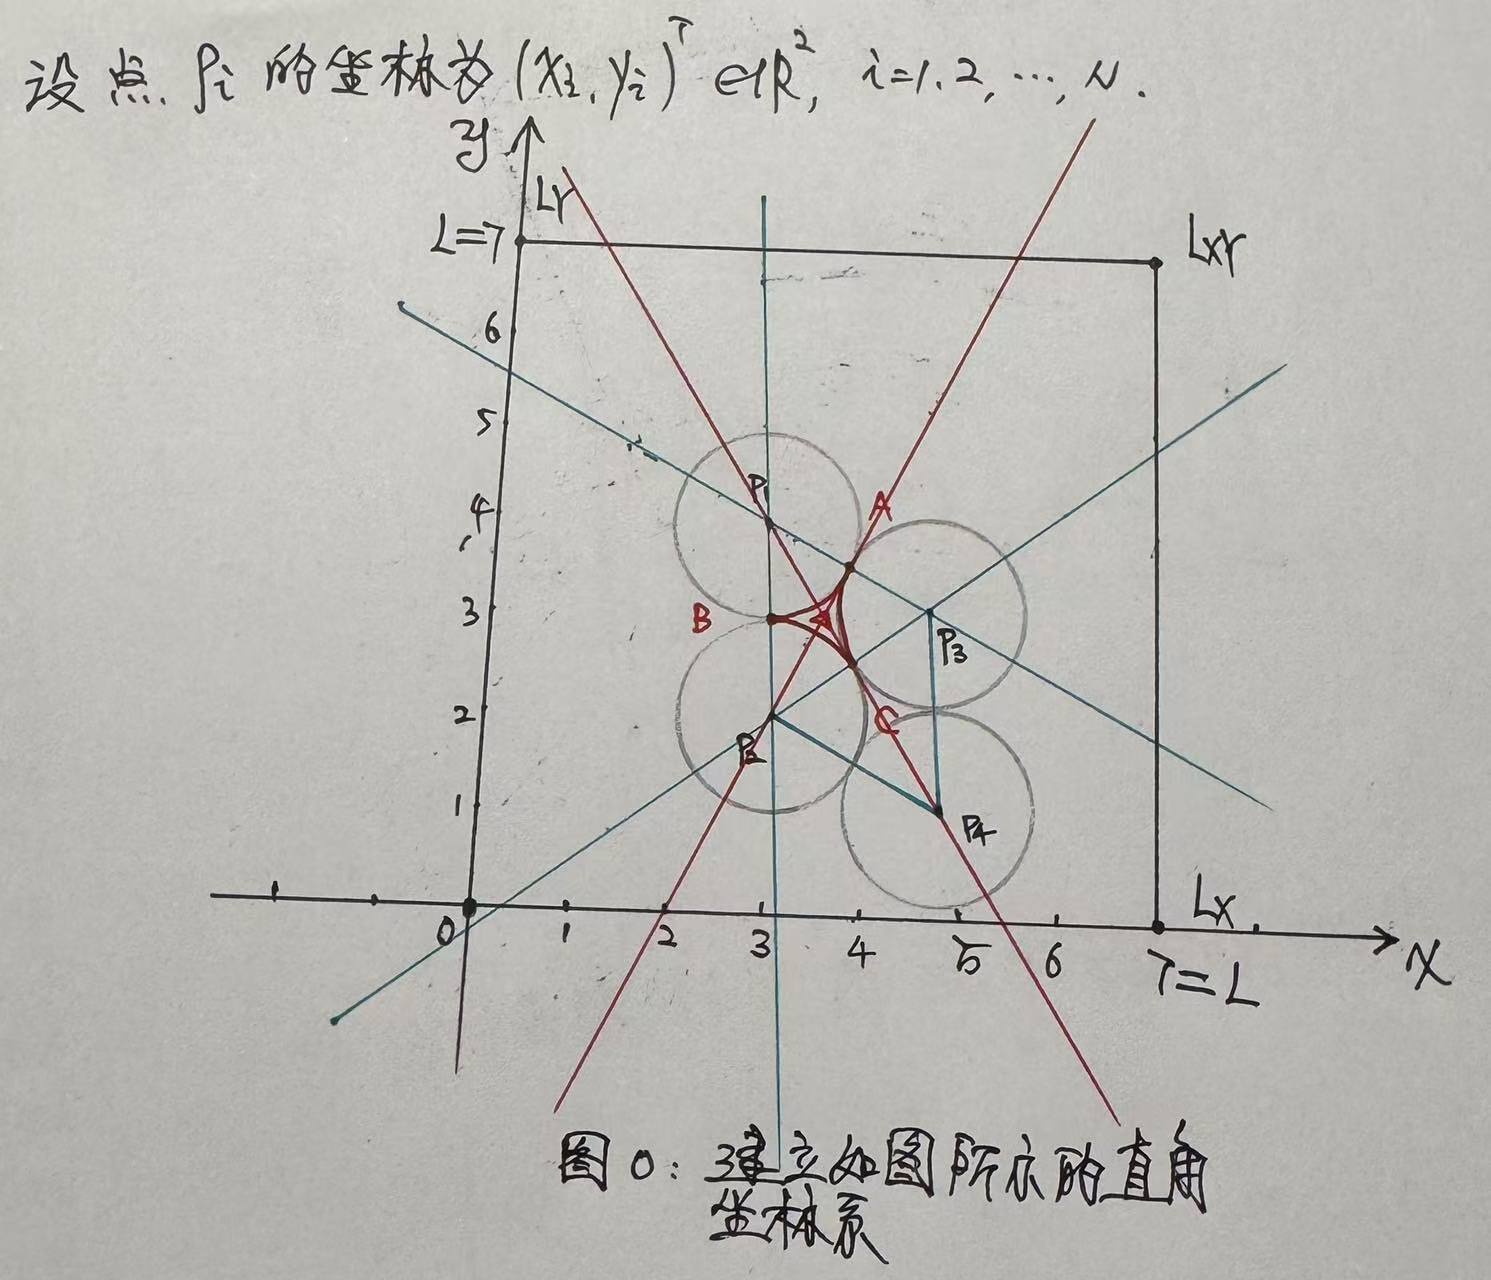 设点 Pi 的坐标为 (xi, yi)ᵀ ∈ℝ², i=1.2, ..., N.
y
LY
L=7
LXY
6
5
P1
4
A
3
B
P3
2
C
P2
1
P4
LX
0
1
2
3
4
5
6
7=L
X
图0: 建立如图所示的直角
坐标系